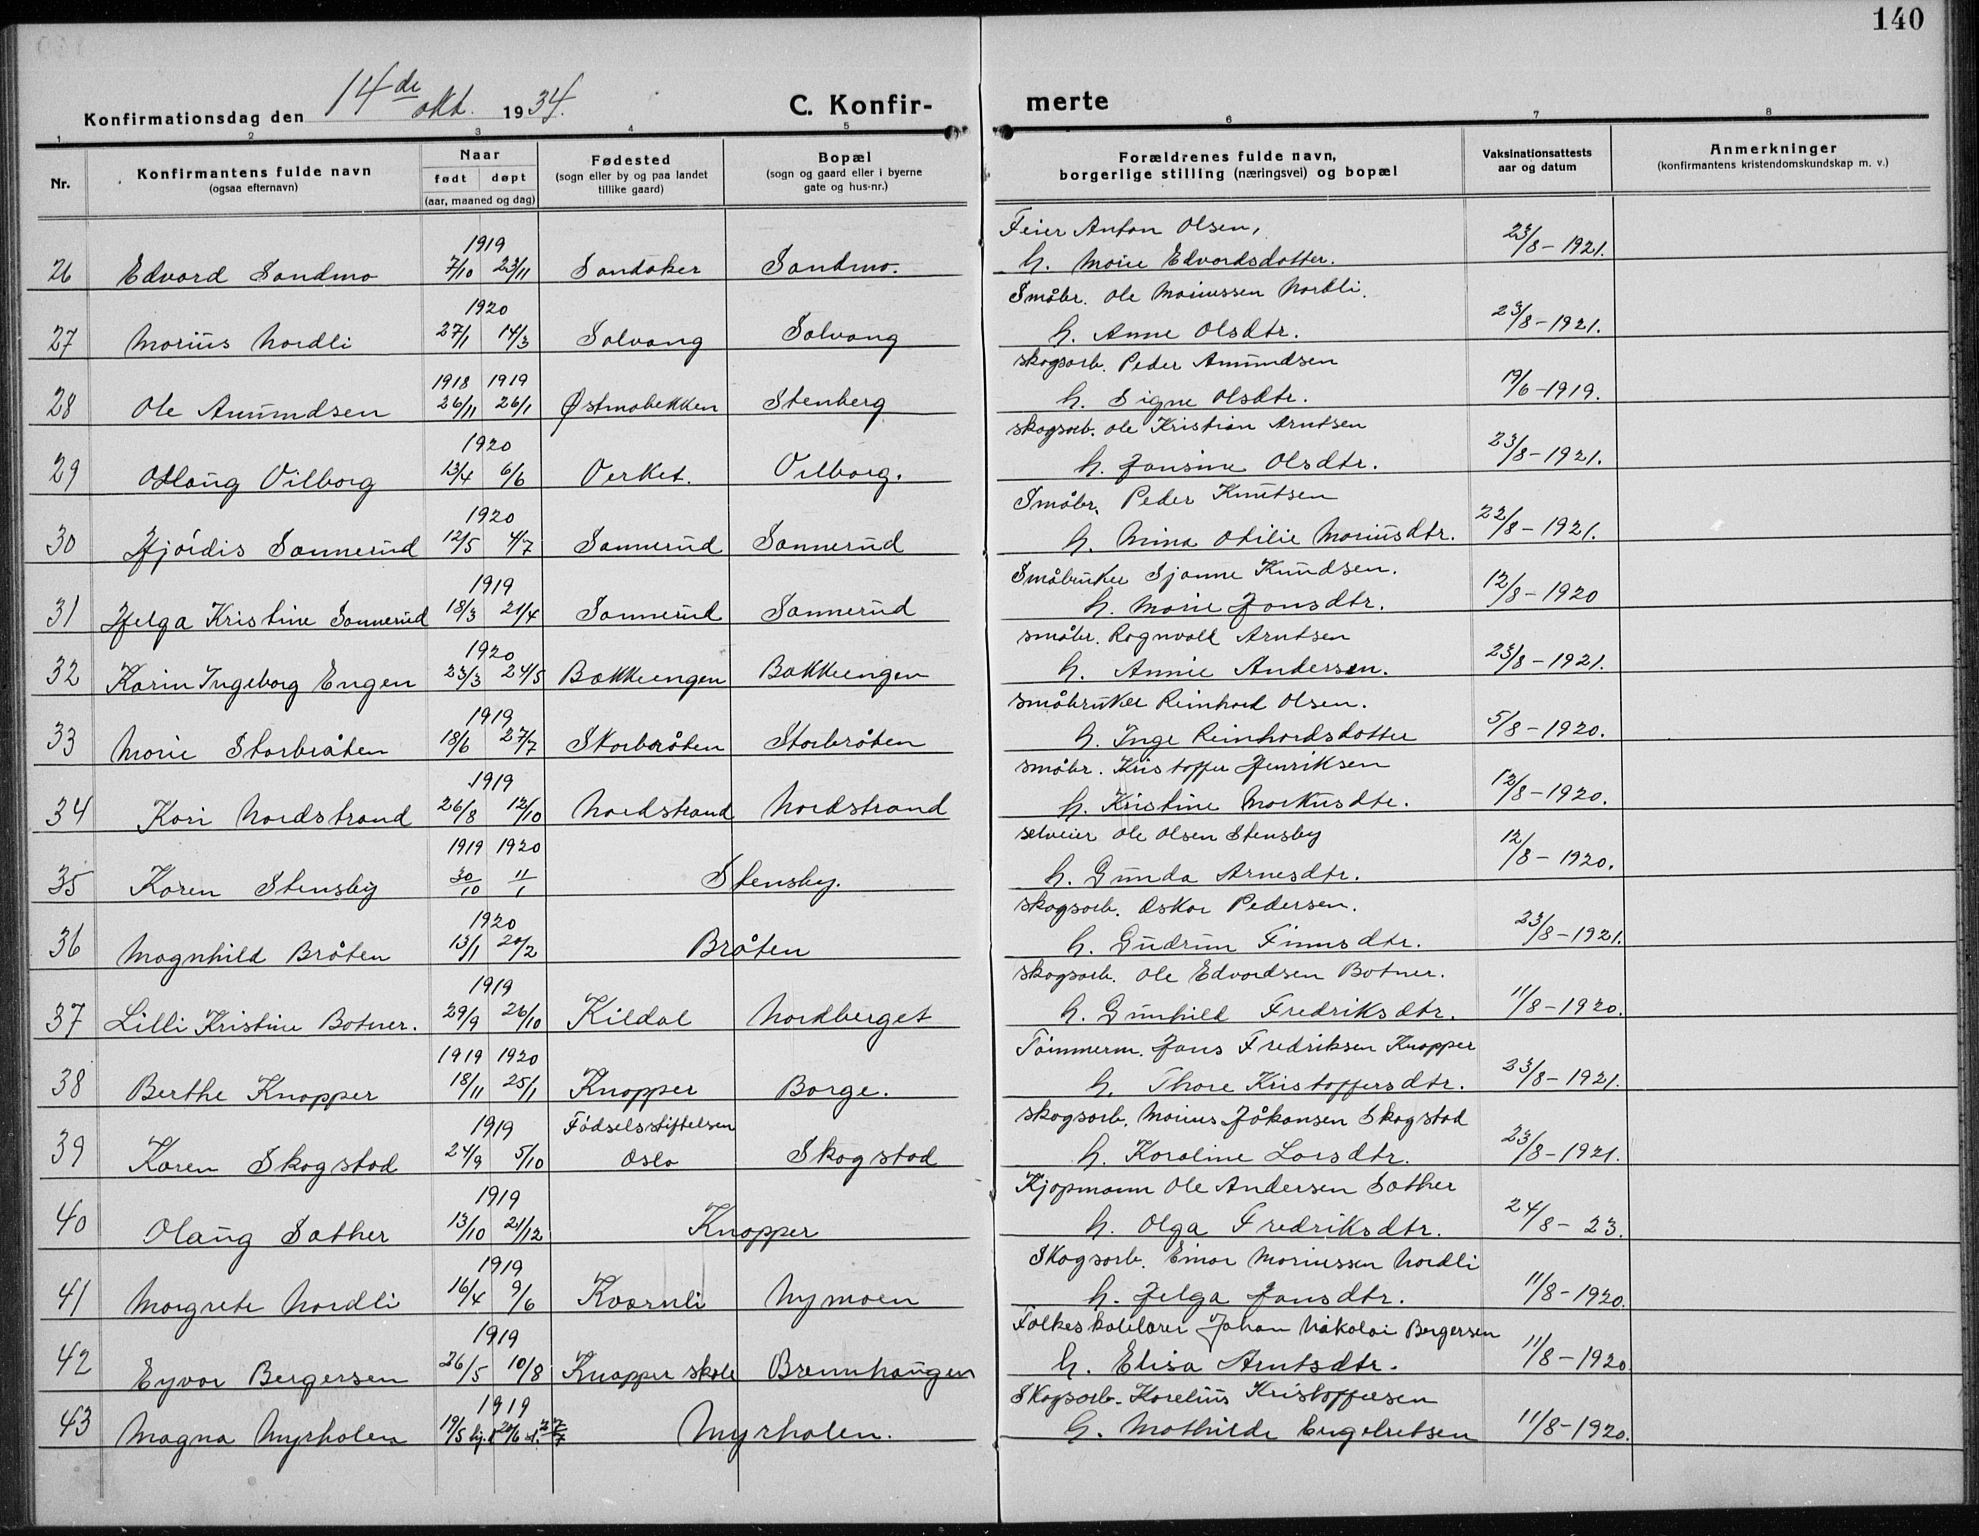 140
Konfirmationsdag den 14de okt. 1934.
C. Konfir- merte
1 2 3 4 5 6 7 8
Nr. | Konfirmantens fulde navn (ogsaa efternavn) | Naar født døpt (aar, maaned og dag) | Fødested (sogn eller by og paa landet tillike gaard) | Bopæl (sogn og gaard eller i byerne gate og hus-nr.) | Forældrenes fulde navn, borgerlige stilling (næringsvei) og bopæl | Vaksinationsattests aar og datum | Anmerkninger (konfirmantens kristendomskundskap m. v.)
1919 Feier Anton Olsen,
26 Edvard Sandmo 7/10 23/11 Sandaker Sandmo. h. Marie Edvardsdotter. 23/8 – 1921.
1920 Småbr. Ole Mariussen Nordli.
27 Marius Nordli 27/1 14/3 Solvang Solvang h. Anne Olsdtr. 23/8 – 1921.
1918 1919 skogsarb. Peder Amundsen
28 Ole Amundsen 26/11 26/1 Østmobekken Stenberg h. Signe Olsdtr. 19/6 – 1919.
1920 skogsarb. Ole Kristian Arntsen
29 Aslaug Vilborg 13/4 6/6 Verket. Vilborg. h. Jonsine Olsdtr. 23/8 – 1921.
1920 Småbr. Peder Knutsen
30 Hjördis Sannerud 12/5 4/7 Sannerud Sannerud h. Mina Otilie Mariusdtr. 22/8 – 1921.
1919 Småbruker Sjønne Knudsen.
31 Helga Kristine Sannerud 18/3 21/4 Sannerud Sannerud h. Marie Jonsdtr. 12/8 – 1920
1920 småbr. Ragnvald Arntsen
32 Karin Ingeborg Engen 23/3 24/5 Bakkeengen Bakkeengen h. Annie Andersen. 23/8 – 1921.
1919 småbruker Reinhard Olsen.
33 Marie Storbråten 18/6 27/7 Storbråten Storbråten h. Inga Reinhardsdotter 5/8 – 1920.
1919 småbr. Kristoffer Henriksen
34 Kari Nordstrand 26/8 12/10 Nordstrand Nordstrand h. Kristine Markusdtr. 12/8 – 1920.
1919 1920 selveier Ole Olsen Stensby
35 Karen Stensby 30/10 11/1 Stensby. h. Gunda Arnesdtr. 12/8 – 1920.
1920 skogsarb. Oskar Pedersen.
36 Magnhild Bråten 13/1 20/2 Bråten h. Gudrun Finnsdtr. 23/8 – 1921.
1919 skogsarb. Ole Edvardsen Botner.
37 Lilli Kristine Botner. 29/9 26/10 Kildal Nordberget h. Gunhild Fredriksdtr. 11/8 – 1920.
1919 1920 Tömmerm. Jans Fredriksen Knapper
38 Berthe Knapper 18/11 25/1 Knapper Borge. h. Thora Kristoffersdtr. 23/8 – 1921.
1919 Fødselsstiftelsen skogsarb. Marius Johansen Skogstad
39 Karen Skogstad 24/9 5/10 Oslo Skogstad h. Karoline Larsdtr. 23/8 – 1921.
1919 Kjøpmann Ole Andersen Sæther
40 Olaug Sæther 13/10 21/12 Knapper h. Olga Fredriksdtr. 24/8 – 23.
1919 Skogsarb. Einar Mariussen Nordli
41 Margrete Nordli 16/4 9/6 Kværnli Nymoen h. Helga Jonsdtr. 11/8 – 1920.
1919 Folkeskolelærer Johan Nikolai Bergersen
42 Eyvor Bergersen 26/5 10/8 Knapper skole Brennhaugen h. Elisa Arntsdtr. 11/8 – 1920
1919 Skogsarb. Karelius Kristoffersen
43 Magna Myrholen 19/5 hj. 24/6 st. 27/7 Myrholen. h. Mathilde Engebretsen 11/8 – 1920.